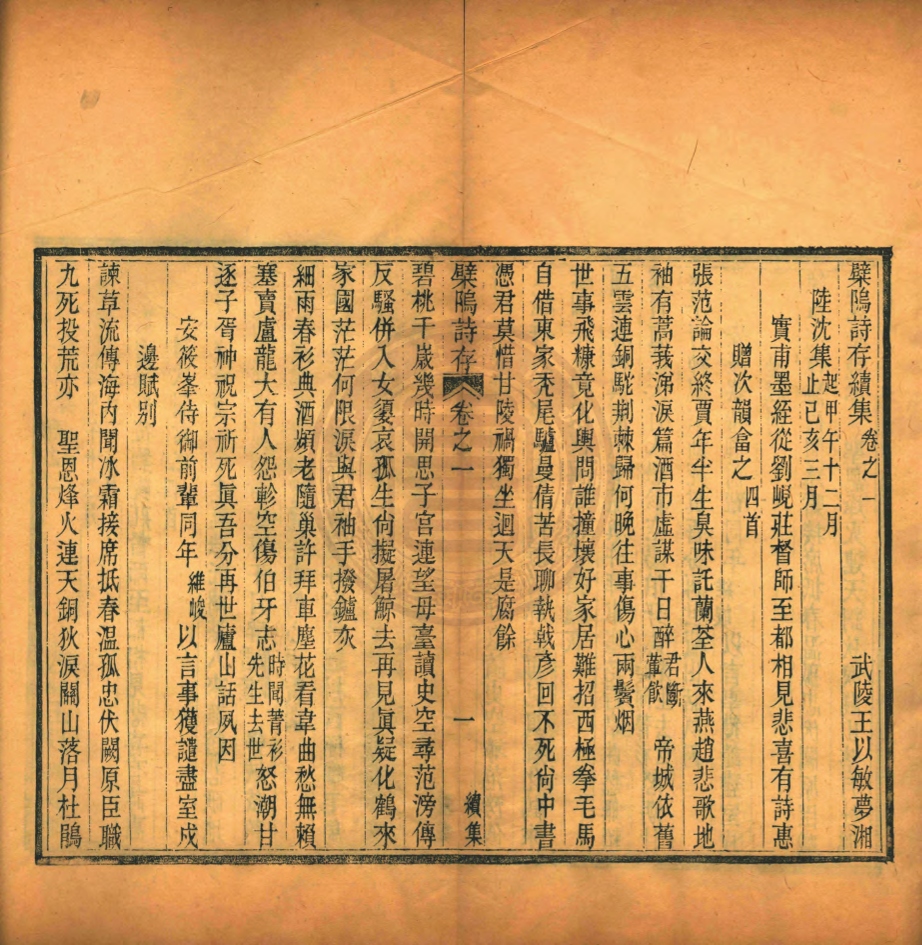 檗塢詩存續集 卷之一 武陵王以敏夢湘
陸沈集 起甲午十二月 止己亥三月
實甫墨絰從劉峴莊督師至都相見悲喜有詩惠
贈次韻畣之 四首
張范論交終賈年半生臭味託蘭荃人來燕趙悲歌地
袖有蒿莪涕淚篇酒市虛謀千日醉 君斷葷飲 帝城依舊
五雲連銅駝荆棘歸何晚往事傷心兩鬢烟
世事飛糠竟化輿問誰撞壞好家居難招西極拳毛馬
自借東家禿尾驢曼倩苦長聊執戟彥回不死尙中書
憑君莫惜甘陵禍獨坐迴天是腐餘
檗塢詩存 卷之一 一 續集
碧桃千歲幾時開思子宮連望母臺讀史空尋范滂傳
反騷併入女嬃哀孤生尙擬屠鯨去再見眞疑化鶴來
家國茫茫何限淚與君袖手撥鑪灰
細雨春衫典酒頻老隨巢許拜車塵花看韋曲愁無賴
塞賣盧龍大有人怨軫空傷伯牙志 時聞菁衫先生去世 怒潮甘
逐子胥神祝宗祈死眞吾分再世廬山話夙因
安筱峯侍御前輩同年 維峻 以言事獲譴盡室戍
邊賦別
諫草流傳海内聞冰霜接席抵春温孤忠伏闕原臣職
九死投荒亦 聖恩烽火連天銅狄淚關山落月杜鵑